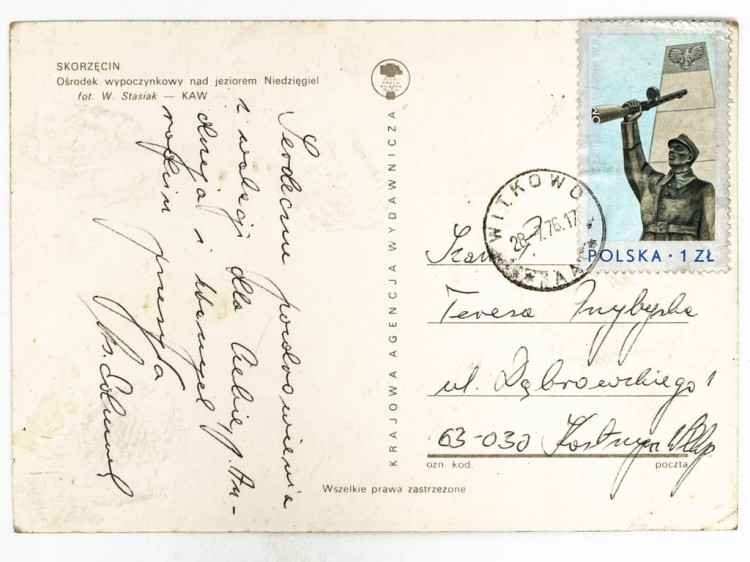 SKORZĘCIN
Ośrodek wypoczynkowy nad jeziorem Niedzięgiel
fot. W. Stasiak — KAW
Serdeczne pozdrowienia
z wakacji dla Ciebie,
i
rodziny przesyła
KRAJOWA AGENCJA WYDAWNICZA
WITKOWO
28.7.76.17
POLSKA · 1 ZŁ
Teresa
ul. Dąbrowskiego 1
63-030 Kostrzyn Wlkp
ozn. kod. poczta
Wszelkie prawa zastrzeżone